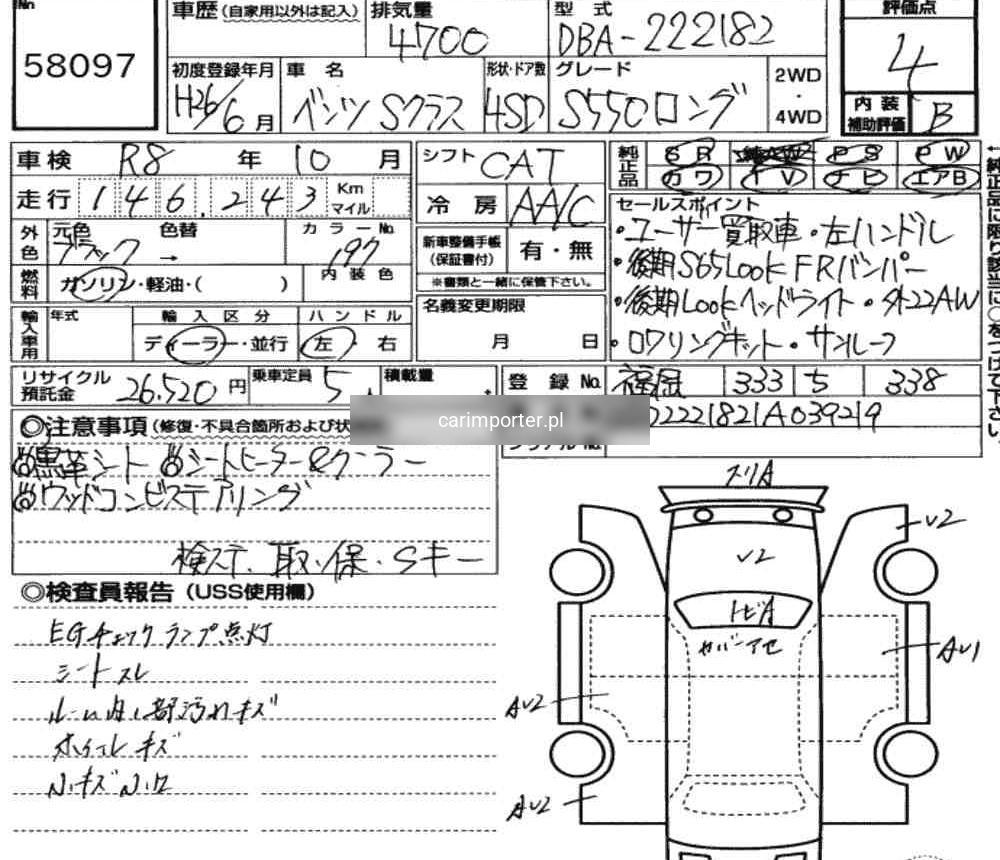 No
58097
車歴（自家用以外は記入）
排気量
4700
型 式
DBA-222182
評価点
4
初度登録年月
H26/6月
車 名
ベンツ Sクラス
形状・ドア数
4SD
グレード
S550ロング
2WD
・
4WD
内 装
補助評価
B
車検 R8 年 10 月
走行 146,243 Km
マイル
外色
元色
ブラック →
色替
カラーNo.
197
燃料
ガソリン・軽油・（ ）
内 装 色
輸入車用
年式
輸 入 区 分
ディーラー・並行
ハ ン ド ル
左・右
シフト
CAT
冷 房
AA/C
新車整備手帳
（保証書付）
有・無
※書類と一緒に保管下さい。
名義変更期限
月 日
純正品
SR AW PS PW
カワ TV ナビ エアB
セールスポイント
・ユーザー買取車・左ハンドル
・後期S65Look FRバンパー
・後期Lookヘッドライト・外22AW
・ロワリングキット・サンルーフ
←純正品に限り該当に○をつけて下さい。
リサイクル
預託金
26,520 円
乗車定員
5人
積載量
登 録 No.
福岡 333 5 338
2221821A039219
carimporter.pl
◎注意事項（修復・不具合箇所および状
黒革シート シートヒーター&クーラー
ウッドコンビステアリング
検ステ、取・保・Sキー
◎検査員報告（USS使用欄）
EGチェックランプ点灯
シートスレ
ルーム内、一部汚れキズ
ホイール キズ
小キズ 小凹
スリA
V2
V2
トビA
カバーアセ
AU1
AU2
AU2